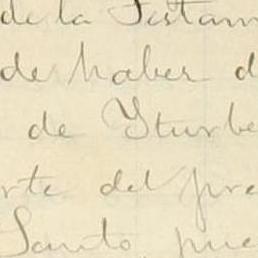 de la Testam
de haber d
de Yturbe
rte del pre
Santo, pue